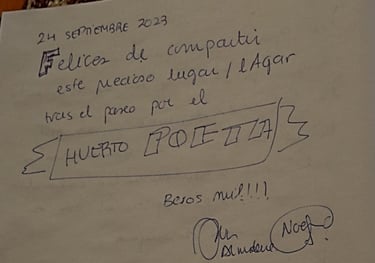 24 SEPTIEMBRE 2023
Felices de compartir
este precioso lugar / lAgar
tras el paseo por el
HUERTO POETA
Besos mil!!!
Almudena Noe